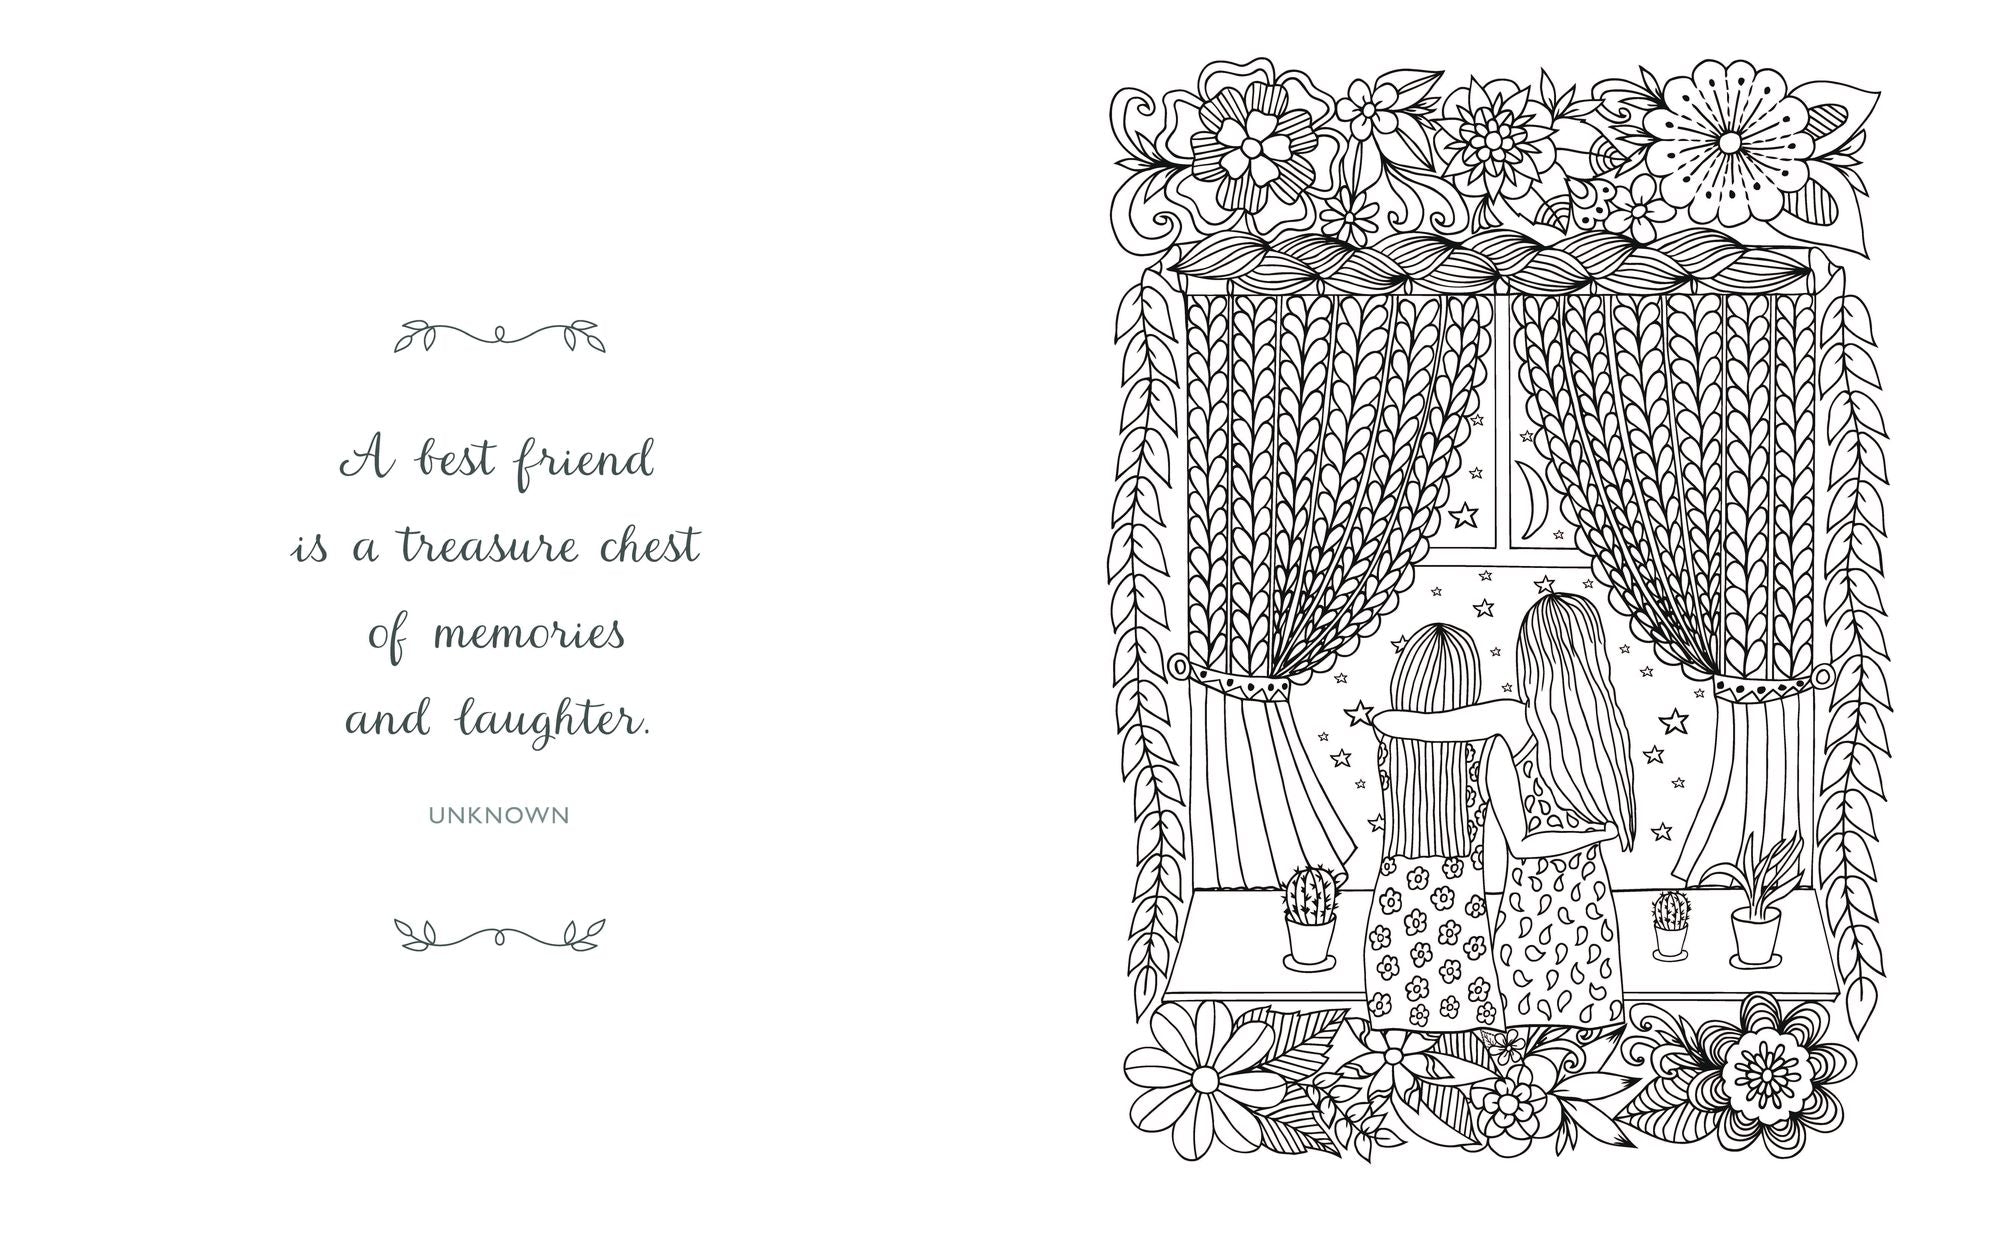 A best friend
is a treasure chest
of memories
and laughter.
UNKNOWN